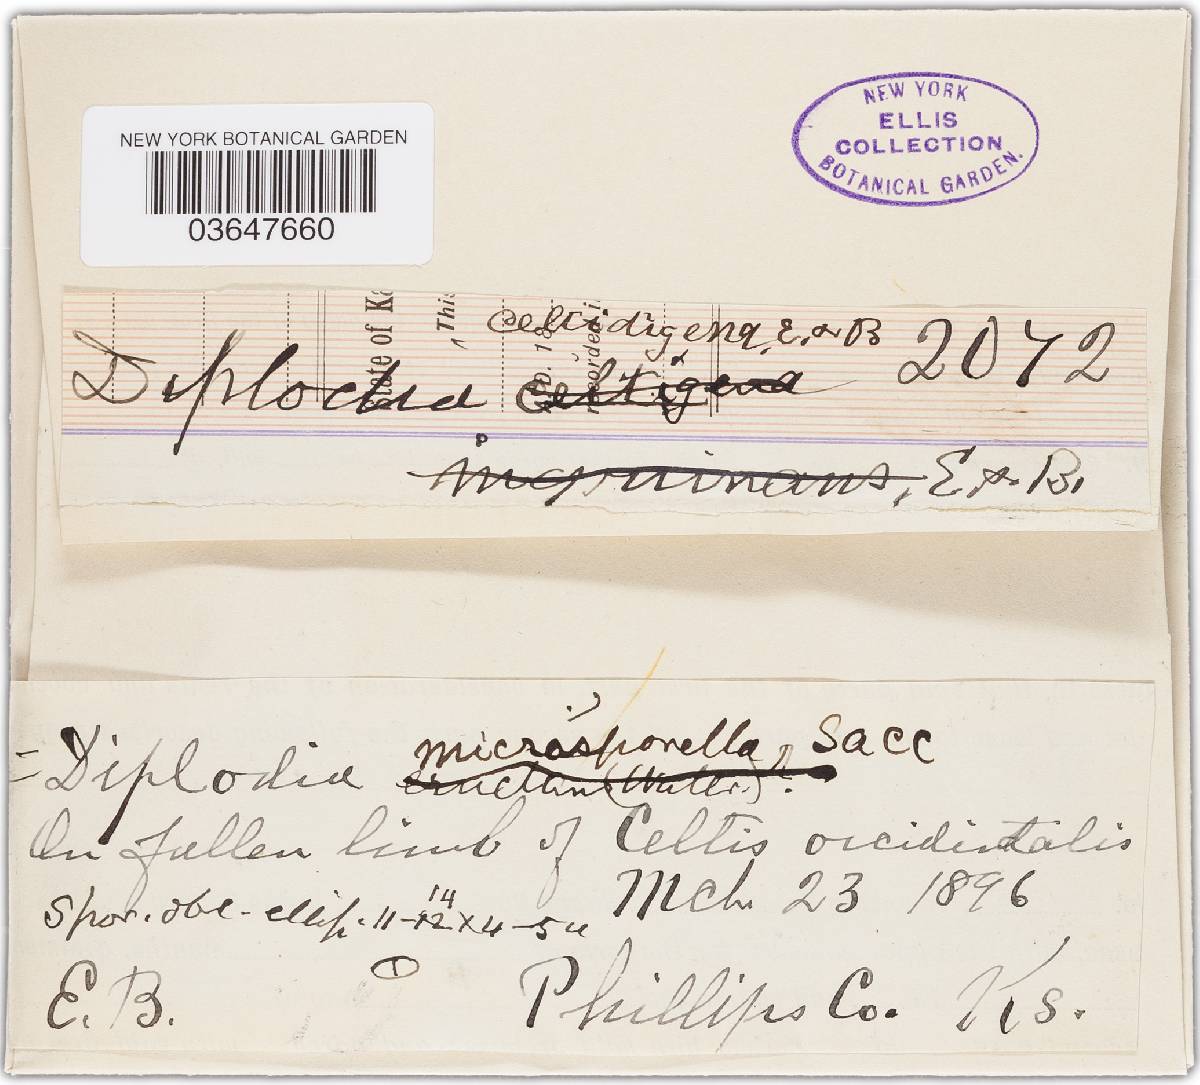 NEW YORK BOTANICAL GARDEN
03647660
NEW YORK
ELLIS
COLLECTION
BOTANICAL GARDEN.
State of Ka
This
recorded i
celtidigena, E. & B 2072
Diplodia celtigena
inquinans, E. & B.
= Diplodia microsporella Sacc
(Wallr.)
On fallen limb of Celtis occidentalis
Spor. obl-ellip. 11-12 14 x 4-5 u Mch. 23 1896
E. B. Phillips Co. Ks.